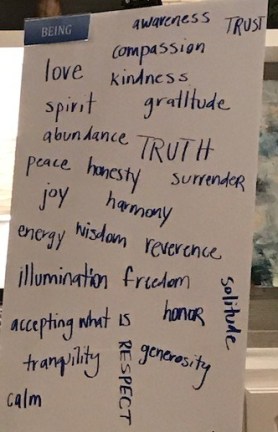 BEING
awareness TRUST
compassion
love kindness
spirit gratitude
abundance TRUTH
peace honesty surrender
joy harmony
energy wisdom reverence
illumination freedom
solitude
accepting what IS honor
tranquility RESPECT generosity
calm